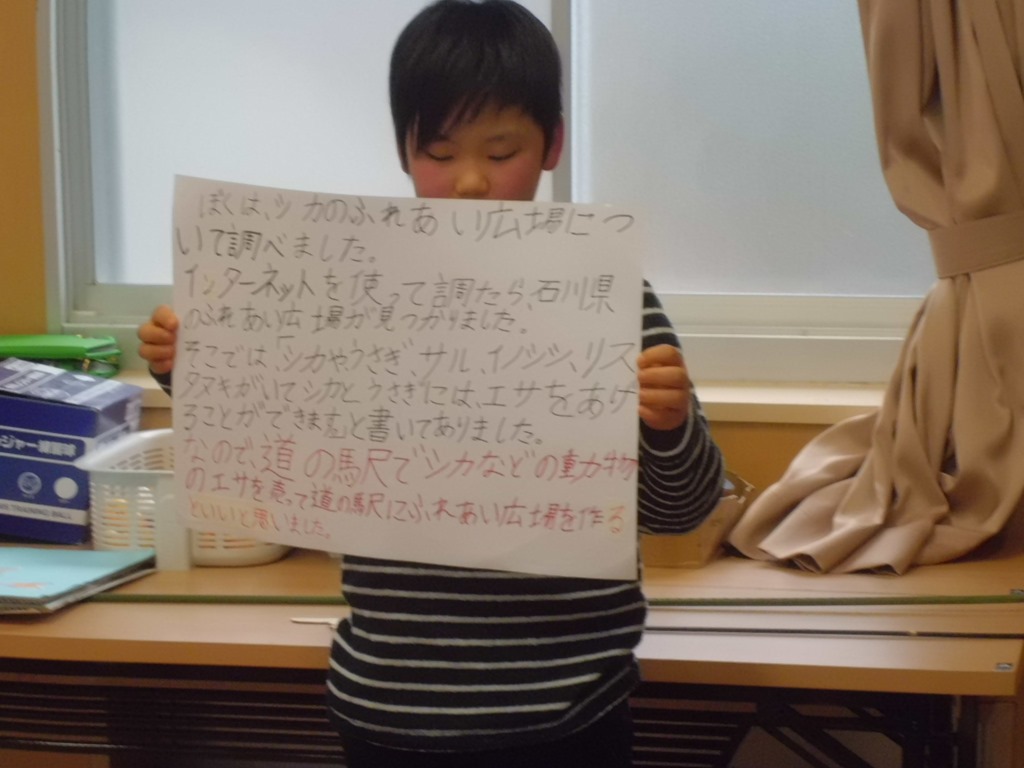 ぼくは、シカのふれあい広場につ
いて調べました。
インターネットを使って調たら、石川県
のふれあい広場が見つかりました。
そこでは、「シカやうさぎ、サル、イノシシ、リス
タヌキがいてシカとうさぎには、エサをあげ
ることができます。」と書いてありました。
なので、道の馬尺でシカなどの動物
のエサを売って道の馬尺にふれあい広場を作る
といいと思いました。
ジャー練習球
TRAINING BALL